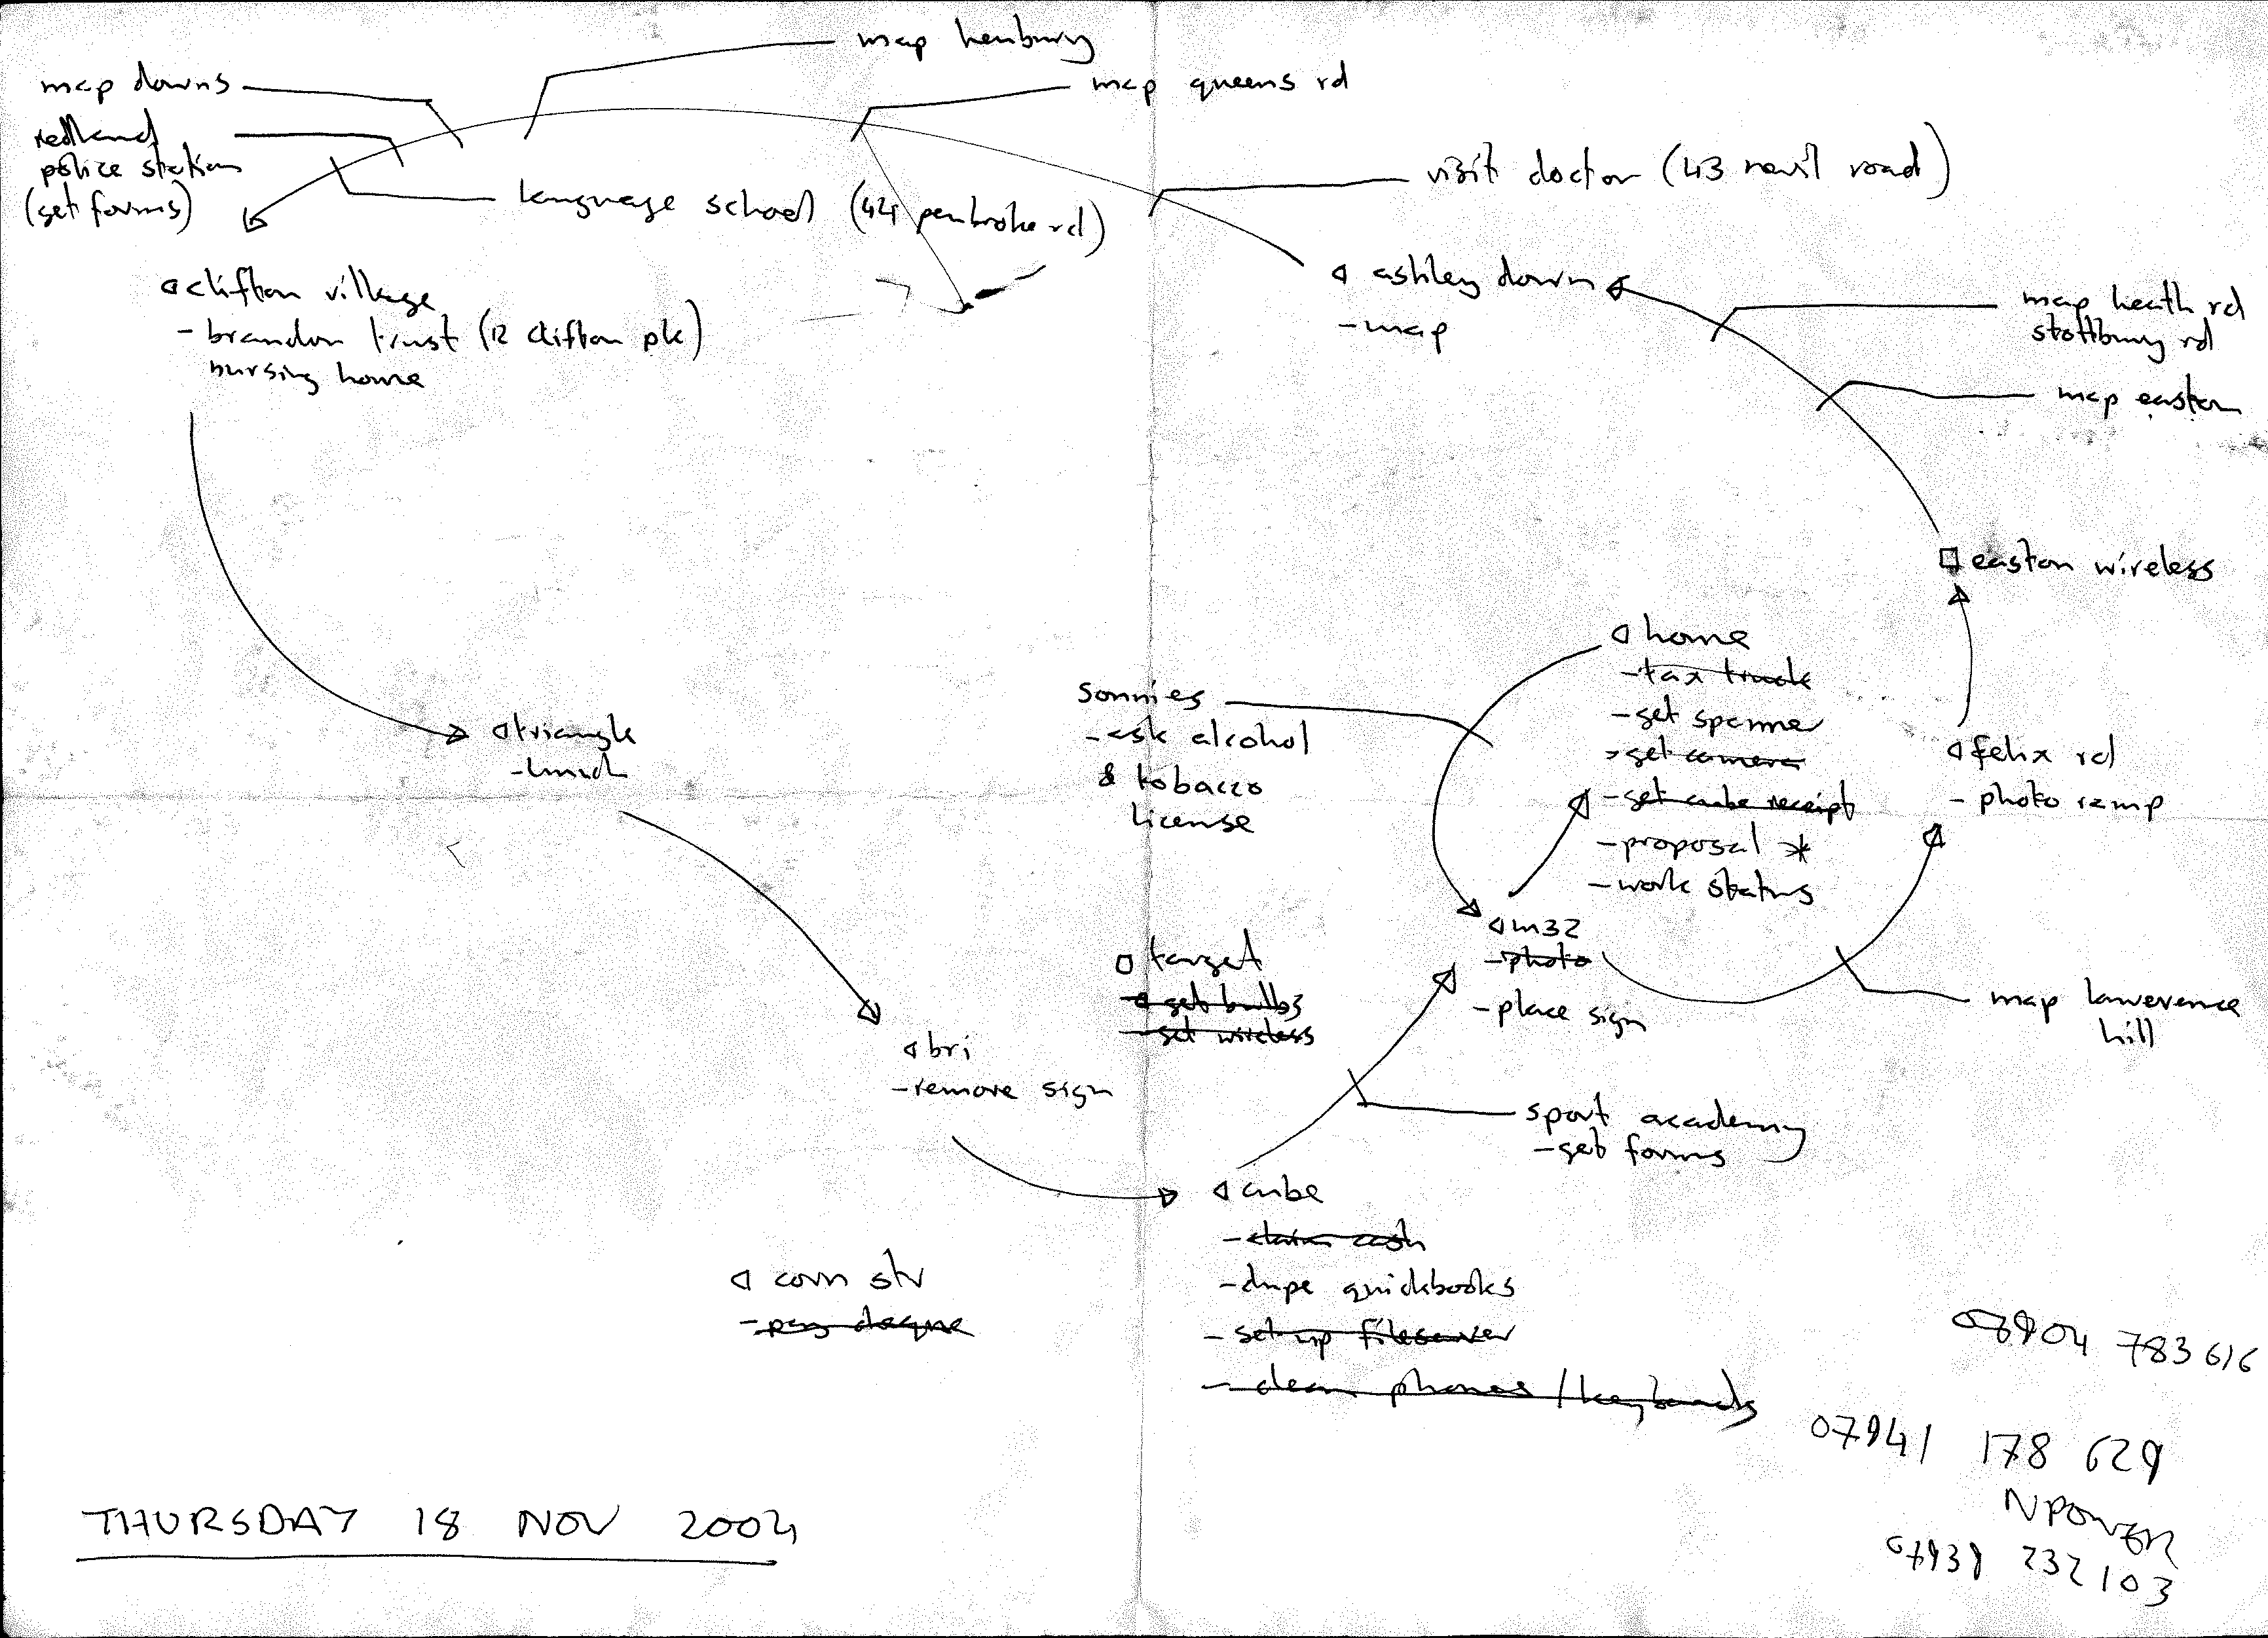 map henbury
map downs
map queens rd
redland
police station
(get forms)
language school (44 penbroke rd)
visit doctor (43 nevil road)
clifton village
- brandon trust (12 clifton pk)
nursing home
ashley down
- map
map heath rd
stottbury rd
map easton
easton wireless
home
- tax truck
- get spanner
- get camera
- get cube receipt
- proposal *
- work status
sonnies
- ask alcohol
& tobacco
license
felix rd
- photo ramp
triangle
- lunch
m32
- photo
- place sign
map lawerence
hill
target
- get bulbs
- get wireless
bri
- remove sign
sport academy
- get forms
cube
- claim cash
- dupe quickbooks
- set up fileserver
- clean phones / keyboards
corn str
- pay cheque
783 616
07941 178 629
NPOWER
232 103
THURSDAY 18 NOV 2004